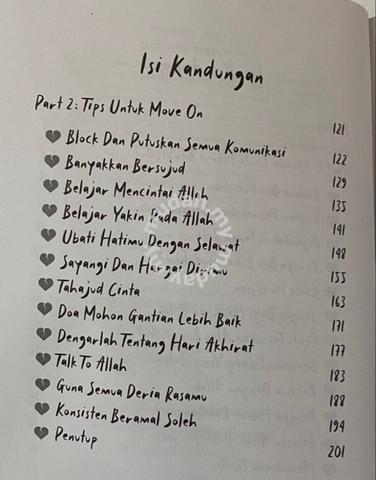 Isi Kandungan
Part 2: Tips Untuk Move On 121
Block Dan Putuskan Semua Komunikasi 122
Banyakkan Bersujud 129
Belajar Mencintai Allah 135
Belajar Yakin Pada Allah 141
Ubati Hatimu Dengan Selawat 148
Sayangi Dan Hargai Dirimu 155
Tahajud Cinta 163
Doa Mohon Gantian Lebih Baik 171
Dengarlah Tentang Hari Akhirat 177
Talk To Allah 183
Guna Semua Deria Rasamu 188
Konsisten Beramal Soleh 194
Penutup 201